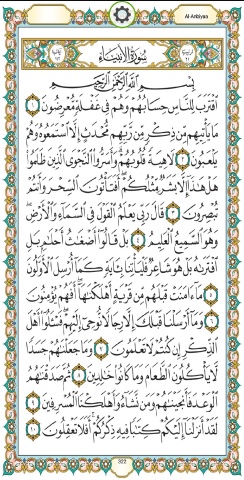 Al Anbiyaa
سُورَةُ الأَنبِيَاءِ
بِسْمِ اللَّهِ الرَّحْمَٰنِ الرَّحِيمِ
اقْتَرَبَ لِلنَّاسِ حِسَابُهُمْ وَهُمْ فِي غَفْلَةٍ مُّعْرِضُونَ ١
مَا يَأْتِيهِم مِّن ذِكْرٍ مِّن رَّبِّهِم مُّحْدَثٍ إِلَّا اسْتَمَعُوهُ وَهُمْ
يَلْعَبُونَ ٢ لَاهِيَةً قُلُوبُهُمْ وَأَسَرُّوا النَّجْوَى الَّذِينَ ظَلَمُوا
هَلْ هَٰذَا إِلَّا بَشَرٌ مِّثْلُكُمْ أَفَتَأْتُونَ السِّحْرَ وَأَنتُمْ
تُبْصِرُونَ ٣ قَالَ رَبِّي يَعْلَمُ الْقَوْلَ فِي السَّمَاءِ وَالْأَرْضِ
وَهُوَ السَّمِيعُ الْعَلِيمُ ٤ بَلْ قَالُوا أَضْغَاثُ أَحْلَامٍ بَلِ
افْتَرَاهُ بَلْ هُوَ شَاعِرٌ فَلْيَأْتِنَا بِآيَةٍ كَمَا أُرْسِلَ الْأَوَّلُونَ
٥ مَا آمَنَتْ قَبْلَهُم مِّن قَرْيَةٍ أَهْلَكْنَاهَا أَفَهُمْ يُؤْمِنُونَ
٦ وَمَا أَرْسَلْنَا قَبْلَكَ إِلَّا رِجَالًا نُّوحِي إِلَيْهِمْ فَسْأَلُوا أَهْلَ
الذِّكْرِ إِن كُنتُمْ لَا تَعْلَمُونَ ٧ وَمَا جَعَلْنَاهُمْ جَسَدًا
لَّا يَأْكُلُونَ الطَّعَامَ وَمَا كَانُوا خَالِدِينَ ٨ ثُمَّ صَدَقْنَاهُمُ
الْوَعْدَ فَأَنجَيْنَاهُمْ وَمَن نَّشَاءُ وَأَهْلَكْنَا الْمُسْرِفِينَ ٩
لَقَدْ أَنزَلْنَا إِلَيْكُمْ كِتَابًا فِيهِ ذِكْرُكُمْ أَفَلَا تَعْقِلُونَ ١٠
322